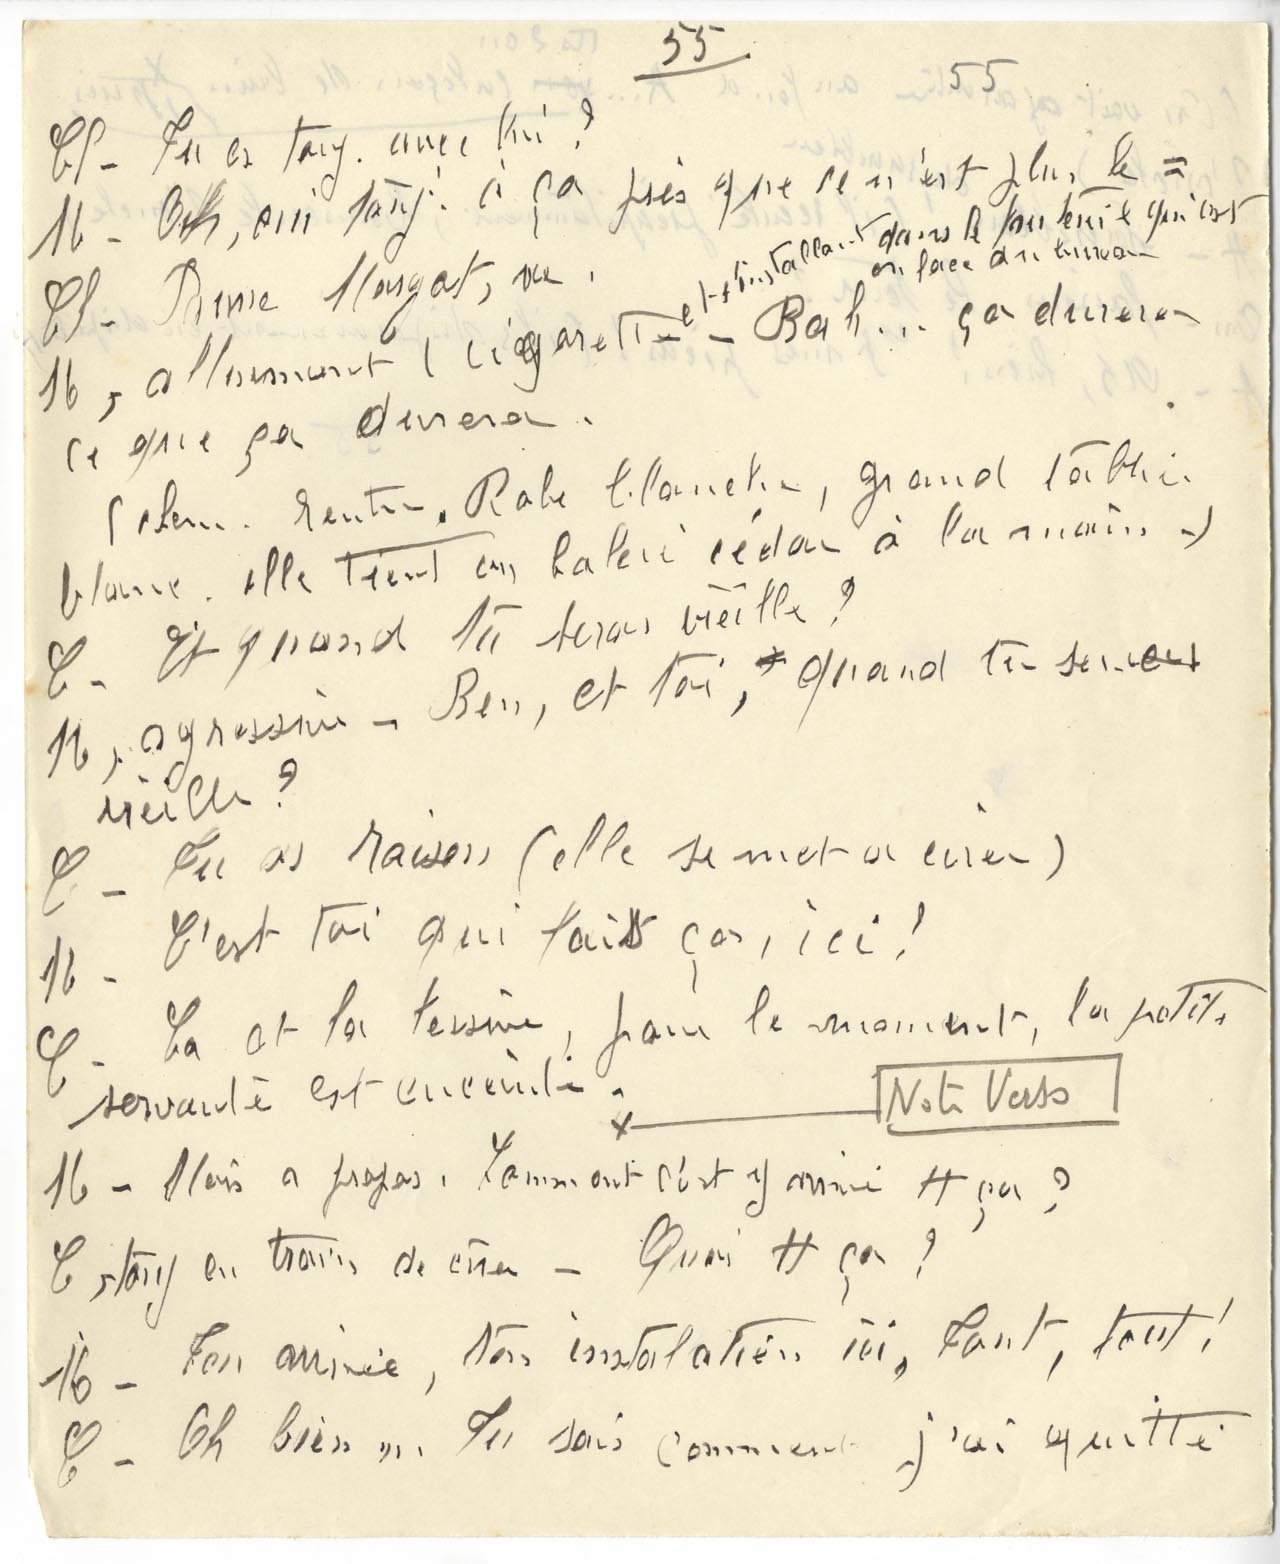 55
55
Cl - Tu es touj. avec lui ?
M - Oh, oui touj. à ça près que ce n'est plus le =
Cl - Pauve Margot, va.
et s'installant dans le fauteuil qui est
en face du bureau
M, allumant 1 cigarette - Bah... ça durera
ce que ça durera.
(Clem. rentre. Robe blanche, grand tablier
blanc. elle tient un balai cédar à la main -)
C - Et quand tu seras vieille ?
M, agressive - Ben, et toi, quand tu seras
vieille ?
C - Tu as raison (elle se met a cirer)
M - C'est toi qui fait ça, ici !
C - Ca et la lessive, pour le moment, la petite
servante est enceinte.
x Note Verso
M - Mais a propos. Comment c'est y arrivé tt ça ?
C, touj en train de cirer - Quoi tt ça ?
M - Ton arrivée, ton instalation ici, Tout, tout !
C - Oh bien ... Tu sais comment j'ai quitté